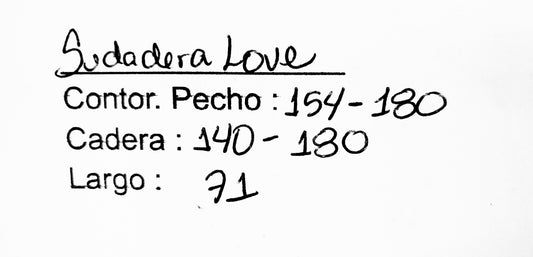 Sudadera Love
Contor. Pecho : 154-180
Cadera : 140 - 180
Largo : 71